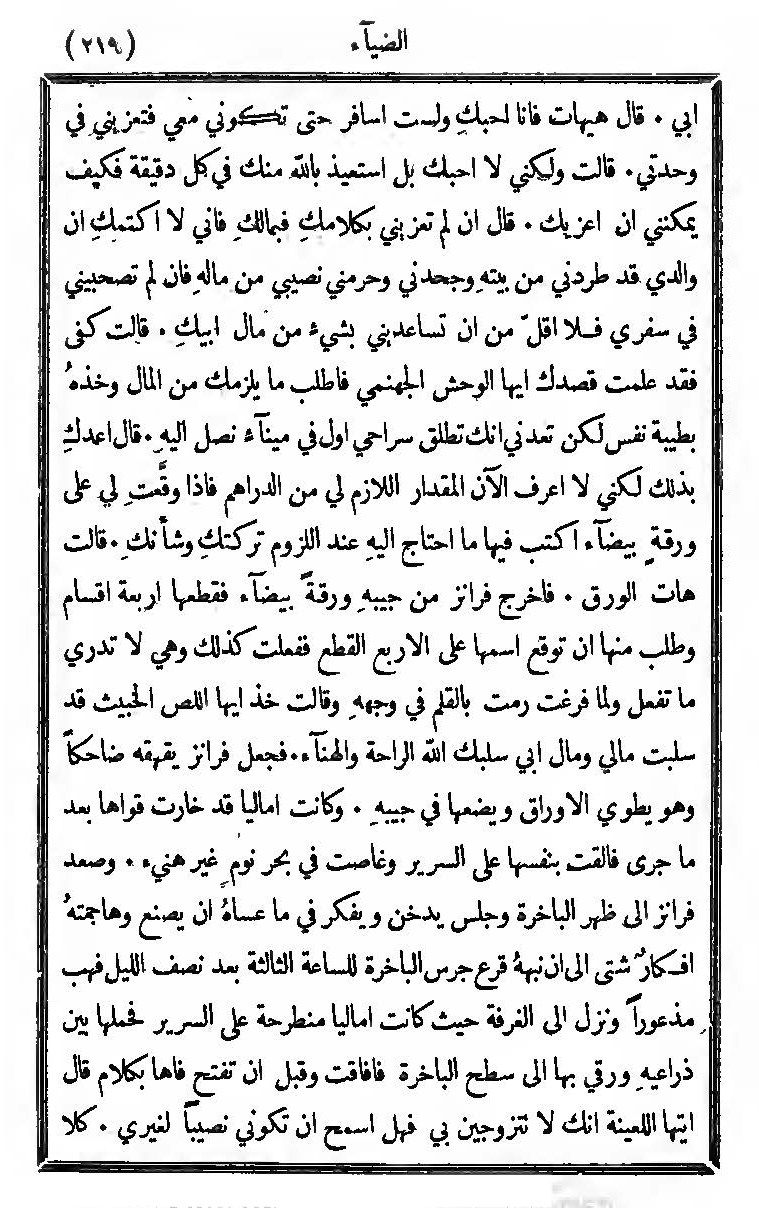 الضيآء
(٢١٩)
ابي ٠ قال هيهات فانا احبكِ ولست اسافر حتى تكوني معي فتعزيني في
وحدتي ٠ قالت ولكني لا احبك بل استعيذ بالله منك في كل دقيقة فكيف
يمكنني ان اعزيك ٠ قال ان لم تعزيني بكلامكِ فبمالكِ فاني لا اكتمكِ ان
والدي قد طردني من بيتهِ وجحدني وحرمني نصيبي من مالهِ فان لم تصحبيني
في سفري فلا اقلّ من ان تساعديني بشيء من مال ابيكِ ٠ قالت كفى
فقد علمت قصدك ايها الوحش الجهنمي فاطلب ما يلزمك من المال وخذهُ
بطيبة نفس لكن تعدني انك تطلق سراحي اول في مينآء نصل اليهِ ٠ قال اعدكِ
بذلك لكني لا اعرف الآن المقدار اللازم لي من الدراهم فاذا وقَّعتِ لي على
ورقةٍ بيضآء اكتب فيها ما احتاج اليهِ عند اللزوم تركتكِ وشأنكِ ٠ قالت
هات الورق ٠ فاخرج فرانز من جيبهِ ورقةً بيضآء فقطعها اربعة اقسام
وطلب منها ان توقع اسمها على الاربع القطع ففعلت كذلك وهي لا تدري
ما تفعل ولما فرغت رمت بالقلم في وجههِ وقالت خذ ايها اللص الخبيث قد
سلبت مالي ومال ابي سلبك الله الراحة والهنآء ٠ فجعل فرانز يقهقه ضاحكاً
وهو يطوي الاوراق ويضعها في جيبهِ ٠ وكانت اماليا قد خارت قواها بعد
ما جرى فالقت بنفسها على السرير وغاصت في بحر نومٍ غير هنيء ٠ وصعد
فرانز الى ظهر الباخرة وجلس يدخن ويفكر في ما عساهُ ان يصنع وهاجمتهُ
افكارٌ شتى الى ان نبههُ قرع جرس الباخرة للساعة الثالثة بعد نصف الليل فهب
مذعوراً ونزل الى الغرفة حيث كانت اماليا منطرحة على السرير فحملها بين
ذراعيهِ ورقي بها الى سطح الباخرة فافاقت وقبل ان تفتح فاها بكلام قال
ايتها اللعينة انك لا تتزوجين بي فهل اسمح ان تكوني نصيباً لغيري ٠ كلا